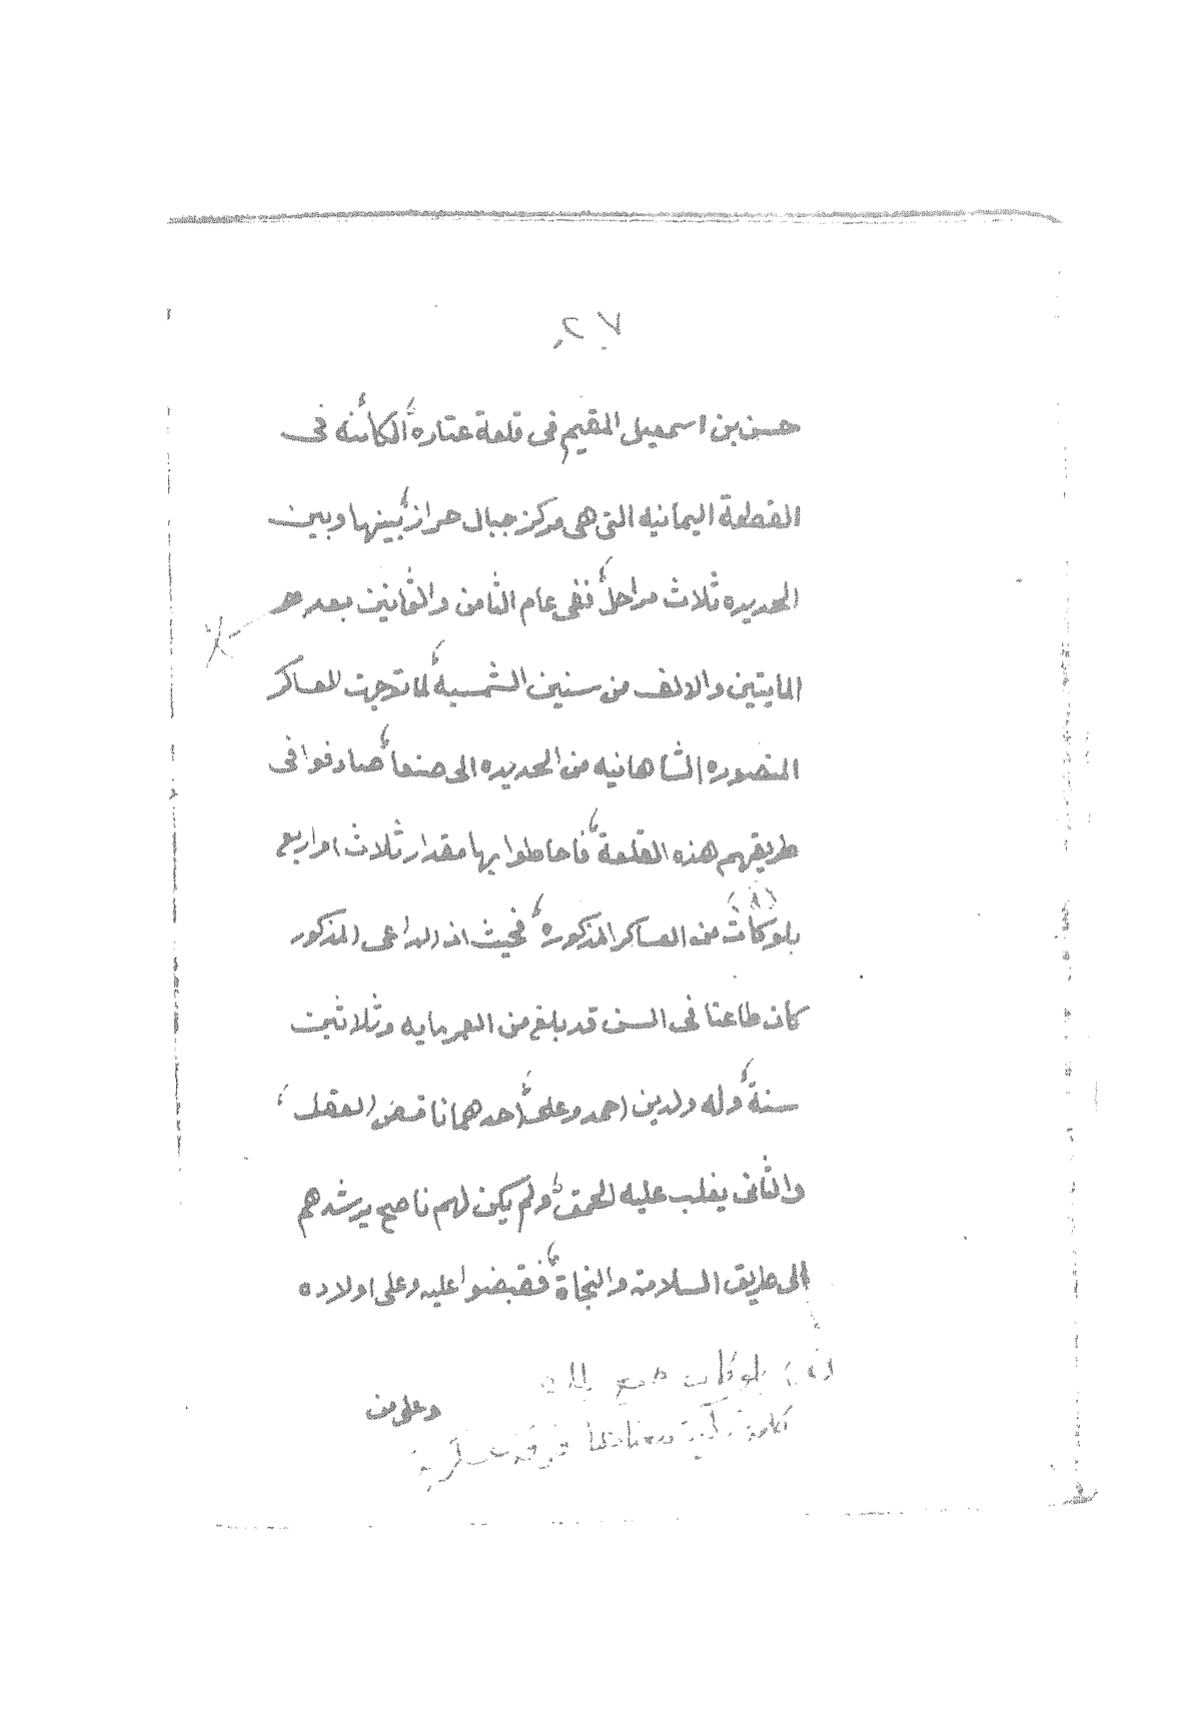 حسن بن اسمعيل المقيم فى قلعة عتاره، الكائنه فى
القطعة اليمانيه التى هى مركز جبال حراز، بينها وبين
الحديده ثلاث مراحل، ففى عام الثامن والثمانين بعد
المايتين والالف من سنين الشمسية، لما توجهت العساكر
المنصوره الشاهانيه من الحديده الى صنعا، صادفوا فى
طريقهم هذه القلعة، فاحاطوا بها مقدار ثلاث او اربع
بلوكات (٨) من العساكر المذكوره، فحيث ان الداعى المذكور
كان طاعنا فى السن قد بلغ من العمر مايه وثلاثين
سنة، وله ولدين احمد وعلى، احدهما ناقص العقل،
والثانى يغلب عليه الحمق، ولم يكن لهم ناصح يرشدهم
الى طريق السلامة والنجاة، فقبضوا عليه وعلى اولاده
بلوكات جمع بلوك
وعلى من
كلمة تركية معناها فرقة عسكرية